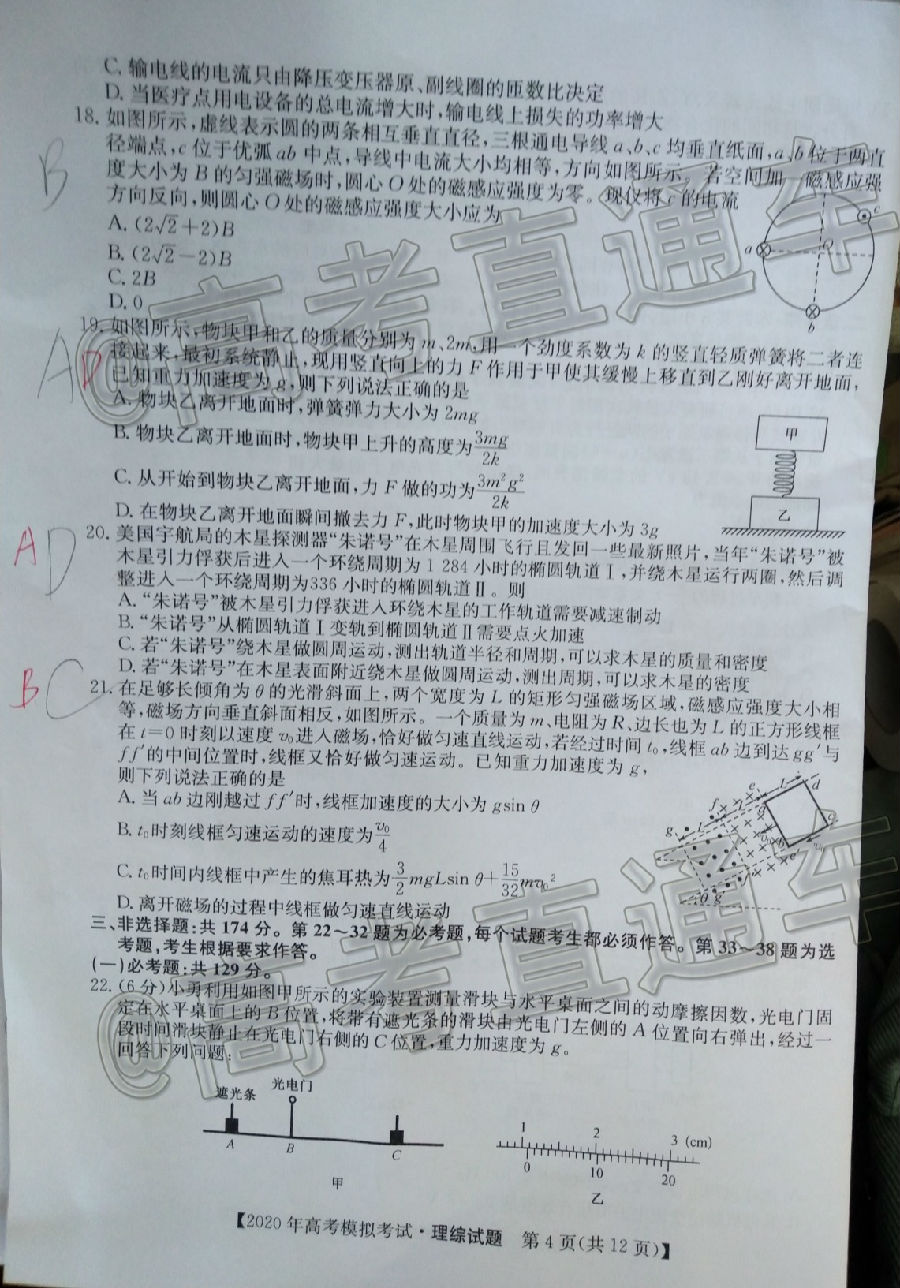 C. 输电线的电流只由降压变压器原、副线圈的匝数比决定
D. 当医疗点用电设备的总电流增大时,输电线上损失的功率增大
18. 如图所示,虚线表示圆的两条相互垂直直径,三根通电导线a、b、c均垂直纸面,a、b位于两直
径端点,c位于优弧ab中点,导线中电流大小均相等,方向如图所示。若空间加一磁感应强
度大小为B的匀强磁场时,圆心O处的磁感应强度为零。现仅将c的电流
方向反向,则圆心O处的磁感应强度大小应为
A. (2√2+2)B
B. (2√2-2)B
C. 2B
D. 0
B
a
b
c
O
19. 如图所示,物块甲和乙的质量分别为m、2m,用一个劲度系数为k的竖直轻质弹簧将二者连
接起来,最初系统静止,现用竖直向上的力F作用于甲使其缓慢上移直到乙刚好离开地面,
已知重力加速度为g,则下列说法正确的是
A. 物块乙离开地面时,弹簧弹力大小为2mg
B. 物块乙离开地面时,物块甲上升的高度为3mg/2k
C. 从开始到物块乙离开地面,力F做的功为3m²g²/2k
D. 在物块乙离开地面瞬间撤去力F,此时物块甲的加速度大小为3g
A D
甲
乙
20. 美国宇航局的木星探测器“朱诺号”在木星周围飞行且发回一些最新照片,当年“朱诺号”被
木星引力俘获后进入一个环绕周期为1 284小时的椭圆轨道Ⅰ,并绕木星运行两圈,然后调
整进入一个环绕周期为336小时的椭圆轨道Ⅱ。则
A. “朱诺号”被木星引力俘获进入环绕木星的工作轨道需要减速制动
B. “朱诺号”从椭圆轨道Ⅰ变轨到椭圆轨道Ⅱ需要点火加速
C. 若“朱诺号”绕木星做圆周运动,测出轨道半径和周期,可以求木星的质量和密度
D. 若“朱诺号”在木星表面附近绕木星做圆周运动,测出周期,可以求木星的密度
A D
21. 在足够长倾角为θ的光滑斜面上,两个宽度为L的矩形匀强磁场区域,磁感应强度大小相
等,磁场方向垂直斜面相反,如图所示。一个质量为m、电阻为R、边长也为L的正方形线框
在t=0时刻以速度v₀进入磁场,恰好做匀速直线运动,若经过时间t₀,线框ab边到达gg′与
ff′的中间位置时,线框又恰好做匀速运动。已知重力加速度为g,
则下列说法正确的是
A. 当ab边刚越过ff′时,线框加速度的大小为gsin θ
B. t₀时刻线框匀速运动的速度为v₀/4
C. t₀时间内线框中产生的焦耳热为3/2mgLsin θ+15/32mv₀²
D. 离开磁场的过程中线框做匀速直线运动
B C
三、非选择题:共174分。第22~32题为必考题,每个试题考生都必须作答。第33~38题为选
考题,考生根据要求作答。
(一)必考题:共129分。
22. (6分)小勇利用如图甲所示的实验装置测量滑块与水平桌面之间的动摩擦因数,光电门固
定在水平桌面上的B位置,将带有遮光条的滑块由光电门左侧的A位置向右弹出,经过一
段时间滑块静止在光电门右侧的C位置,重力加速度为g。
回答下列问题:
遮光条 光电门
A B C
甲
1 2 3 (cm)
0 10 20
乙
【2020年高考模拟考试·理综试题 第4页(共12页)】
@高考直通车
@高考直通车